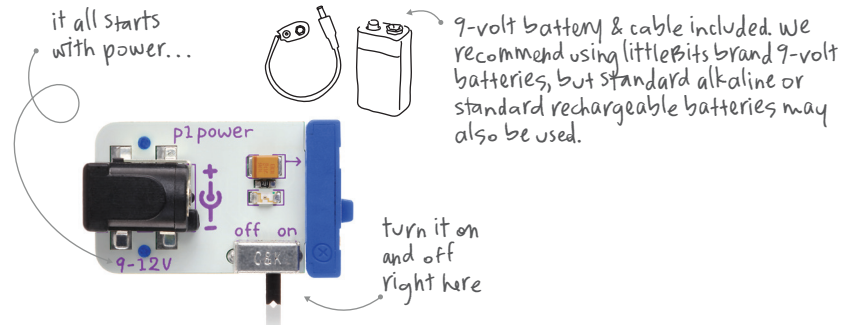 it all starts
with power...
9-volt battery & cable included. We
recommend using littleBits brand 9-volt
batteries, but standard alkaline or
standard rechargeable batteries may
also be used.
p1 power
+
-
off on
C&K
9-12V
turn it on
and off
right here